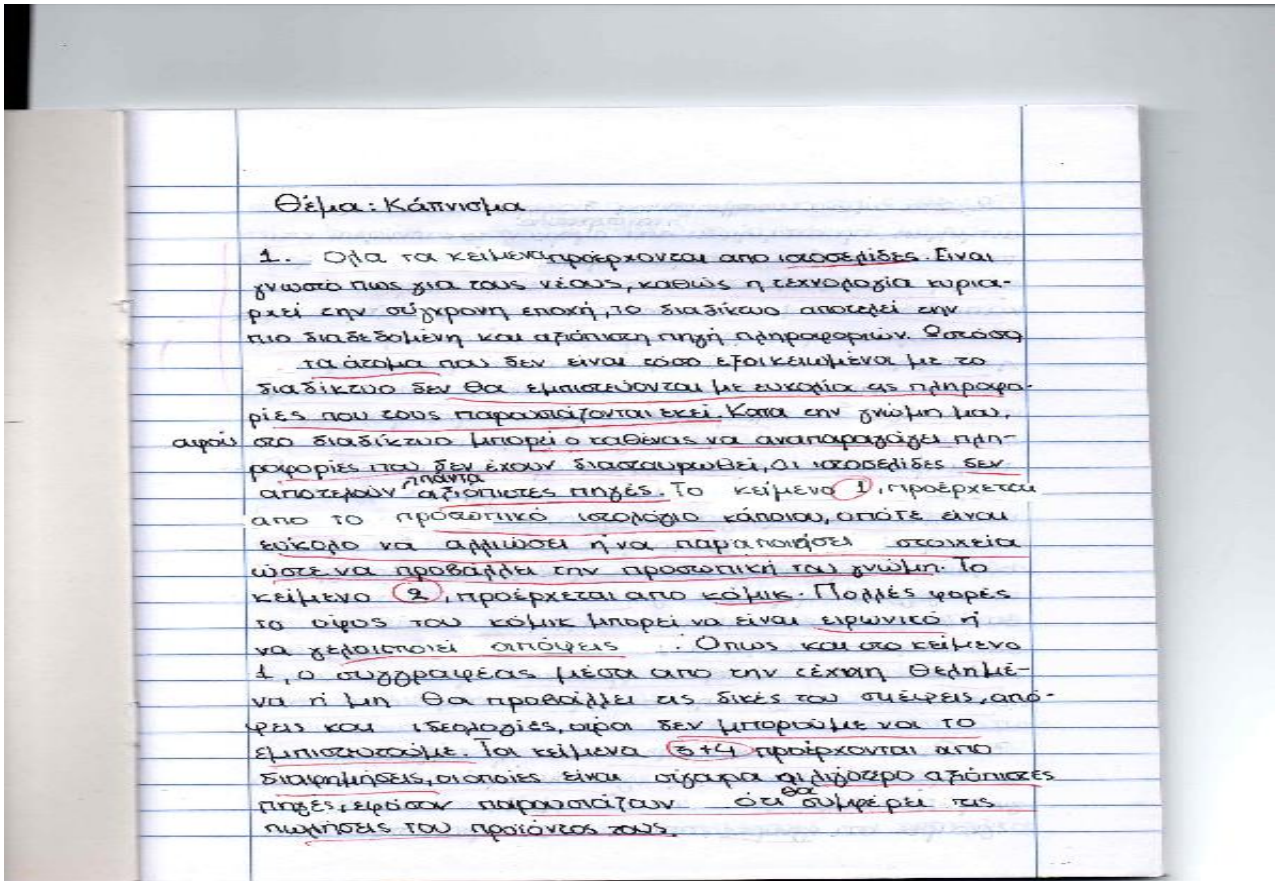 Θέμα: Κάπνισμα
1. Ολα τα κείμενα προέρχονται απο ιστοσελίδες. Ειναι
γνωστό πως για τους νέους, καθώς η τεχνολογία κυρια-
ρχεί την σύγχρονη εποχή, το διαδίκτυο αποτελεί την
πιο διαδεδομένη και αξιόπιστη πηγή πληροφοριών. Ωστόσο,
τα άτομα που δεν είναι τόσο εξοικειωμένα με το
διαδίκτυο δεν θα εμπιστεύονται με ευκολία τις πληροφο-
ρίες που τους παρουσιάζονται εκεί. Κατα την γνώμη μου,
αφού στο διαδίκτυο μπορεί ο καθένας να αναπαραγάγει πλη-
ροφορίες που δεν έχουν διασταυρωθεί, οι ιστοσελίδες δεν
αποτελούν πάντα αξιόπιστες πηγές. Το κείμενο 1, προέρχεται
απο το προσωπικό ιστολόγιο κάποιου, οπότε είναι
εύκολο να αλλιώσει ή να παραποιήσει στοιχεία
ώστε να προβάλλει την προσωπική του γνώμη. Το
κείμενο 2, προέρχεται απο κόμικ. Πολλές φορές
το ύφος του κόμικ μπορεί να είναι ειρωνικό ή
να γελοιοποιεί απόψεις. Οπως και στο κείμενο
1, ο συγγραφέας μέσα απο την τέχνη θελημέ-
να ή μη θα προβάλλει τις δικές του σκέψεις, από-
ψεις και ιδεολογίες, άρα δεν μπορούμε να το
εμπιστευτούμε. Τα κείμενα 3+4 προέρχονται απο
διαφημίσεις, οι οποίες είναι σίγουρα οι λιγότερο αξιόπιστες
πηγές, εφόσον παρουσιάζουν ότι θα συμφέρει τις
πωλήσεις του προϊόντος τους.